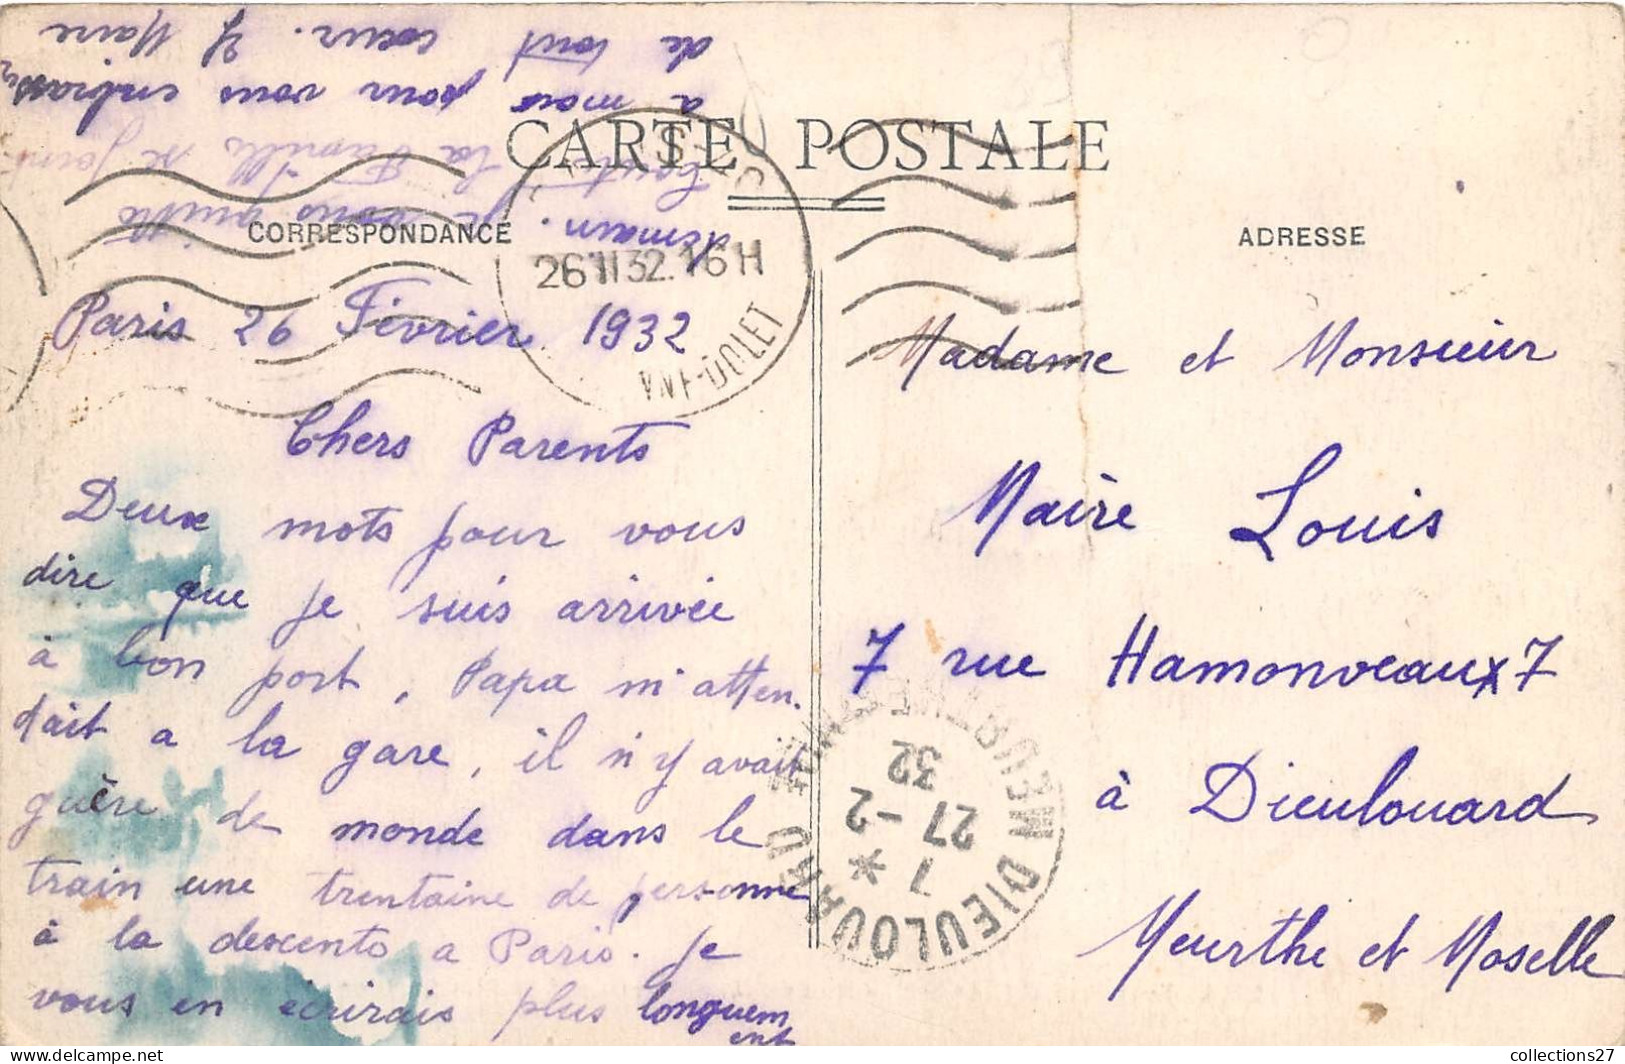 CARTE POSTALE
CORRESPONDANCE
ADRESSE
26 II 32. 16 H
Paris 26 Février 1932
Chers Parents
Deux mots pour vous
dire que je suis arrivée
à bon port, Papa m'atten.
dait a la gare, il n'y avait
guère de monde dans le
train une trentaine de personne
à la descente a Paris. Je
vous en écrirais plus longuem
ent
demain. Je vous quitte
toute la famille se joint
a moi pour vous embrasser
de tout cœur. Y Maire
Madame et Monsieur
Maire Louis
7 rue Hamonveaux 7
à Dieulouard
Meurthe et Moselle
DIEULOUARD
MEURTHE ET MLLE
7 *
27 - 2
32
collections27